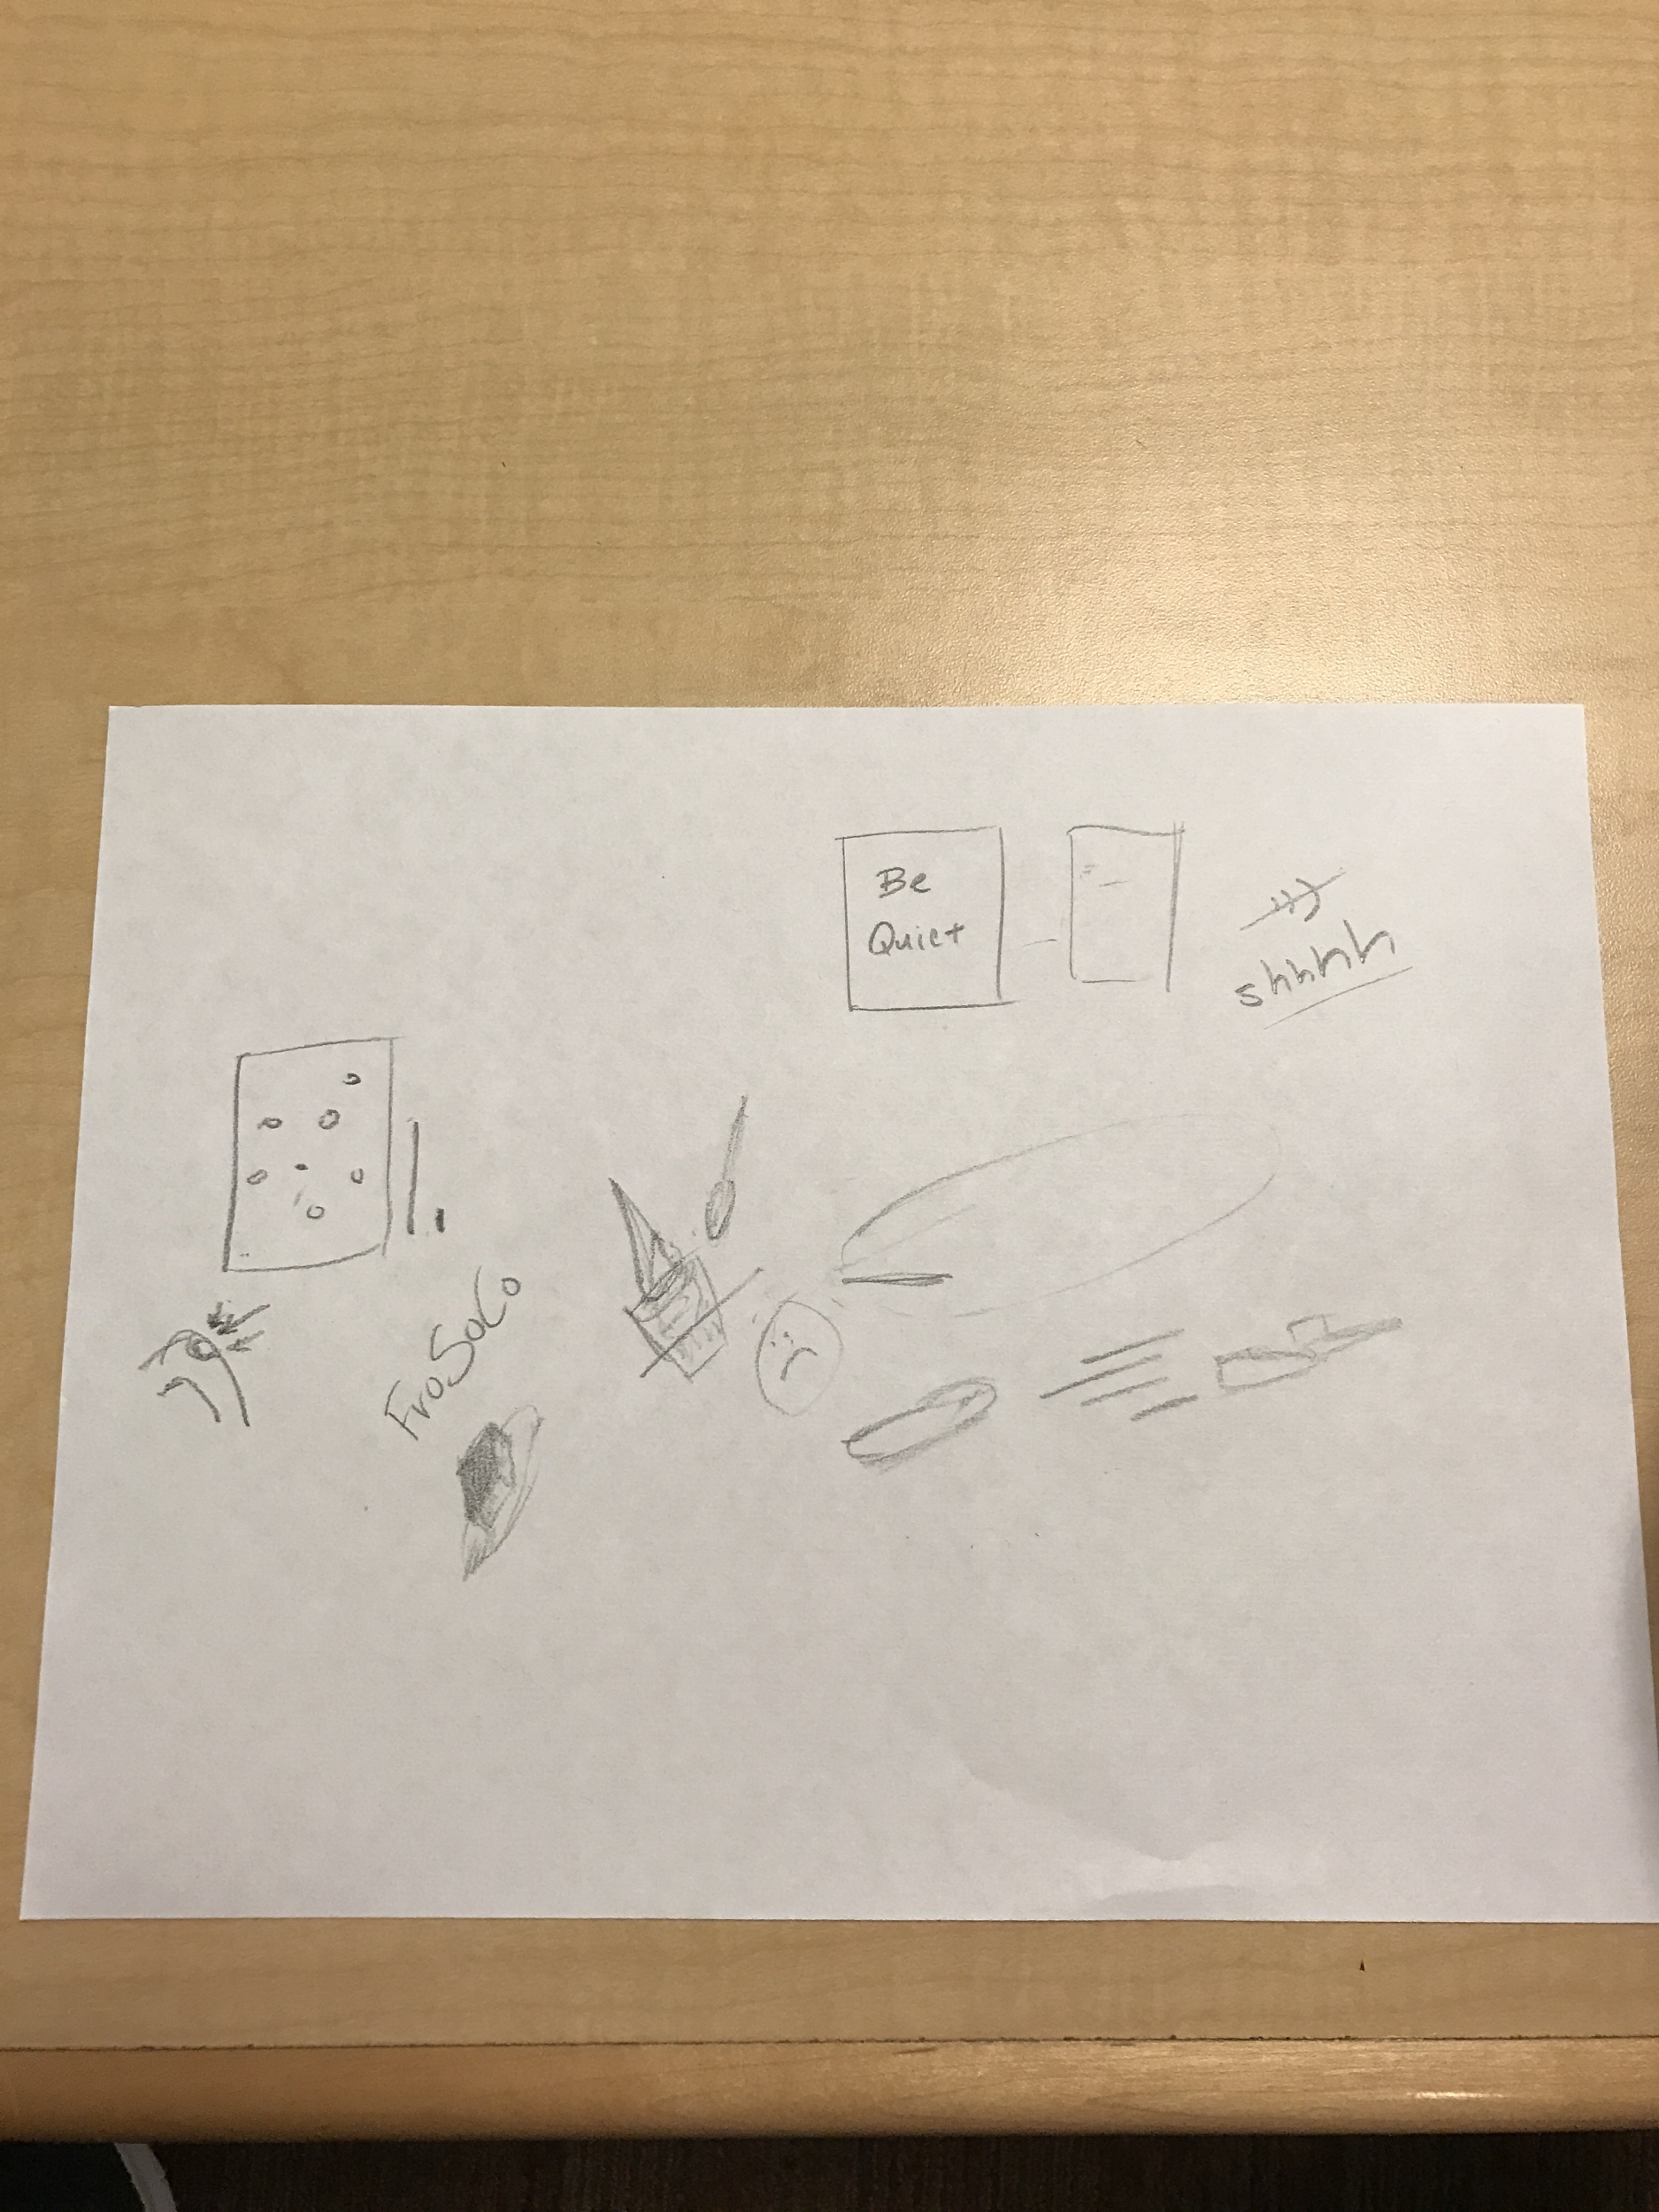 Be
Quiet
shhhh
FroSoCo